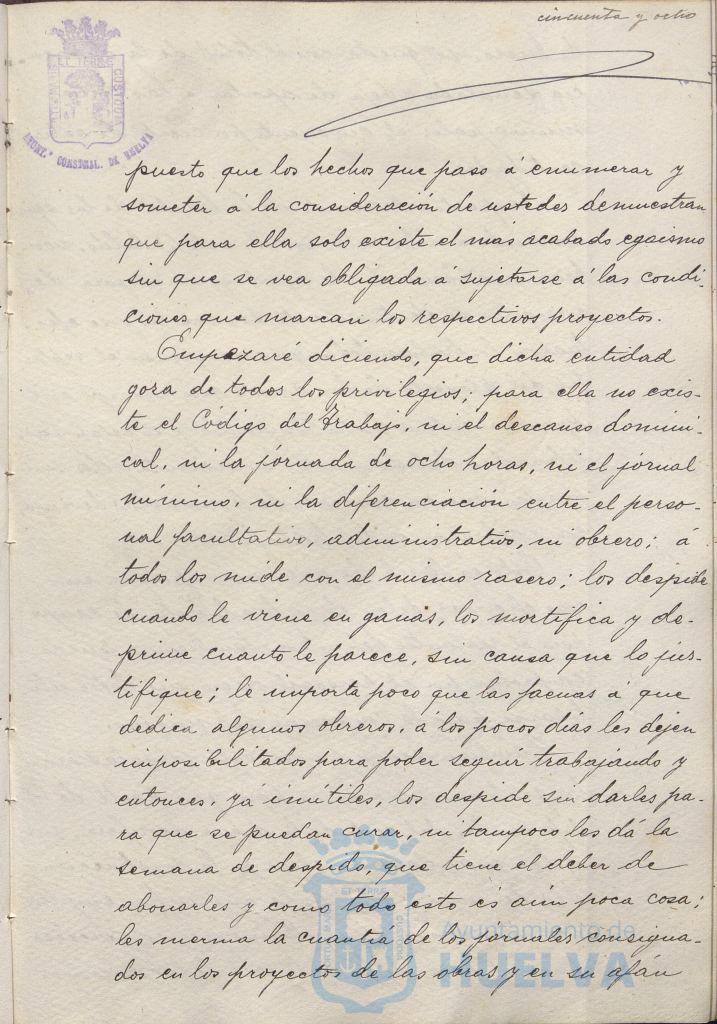 cincuenta y ocho
EL TERRÆ
CUSTODIA
AYUNT.º CONSTNAL. DE HUELVA
puesto que los hechos que paso á enumerar y
someter á la consideración de ustedes demuestran
que para ella solo existe el mas acabado egoismo
sin que se vea obligada á sujetarse á las condi-
ciones que marcan los respectivos proyectos.
Empezaré diciendo, que dicha entidad
goza de todos los privilegios; para ella no exis-
te el Código del Trabajo, ni el descanso domini-
cal, ni la jornada de ocho horas, ni el jornal
mínimo, ni la diferenciación entre el perso-
nal facultativo, administrativo, ni obrero; á
todos los mide con el mismo rasero; los despide
cuando le viene en ganas, los mortifica y de-
prime cuanto le parece, sin causa que lo jus-
tifique; le importa poco que las faenas á que
dedica algunos obreros, á los pocos dias les dejen
imposibilitados para poder seguir trabajando y
entonces, yá inútiles, los despide sin darles pa-
ra que se puedan curar, ni tampoco les dá la
semana de despido, que tiene el deber de
abonarles y como todo esto és aún poca cosa;
les merma la cuantiá de los jornales consigna-
dos en los proyectos de las obras y en su afán
Ayuntamiento de
HUELVA